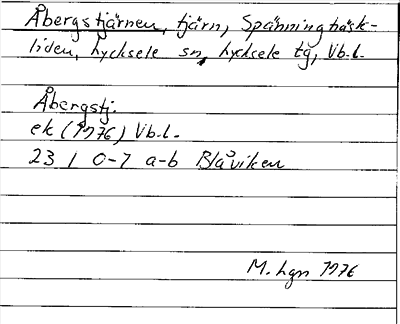 Åbergstjärnen, tjärn, Spänningbäck-
liden, Lycksele sn, Lycksele tg, Vb.l.
Åbergstj.
ek (1976) Vb.l.
23 I 0-7 a-b Blåviken
M. Lgn 1976